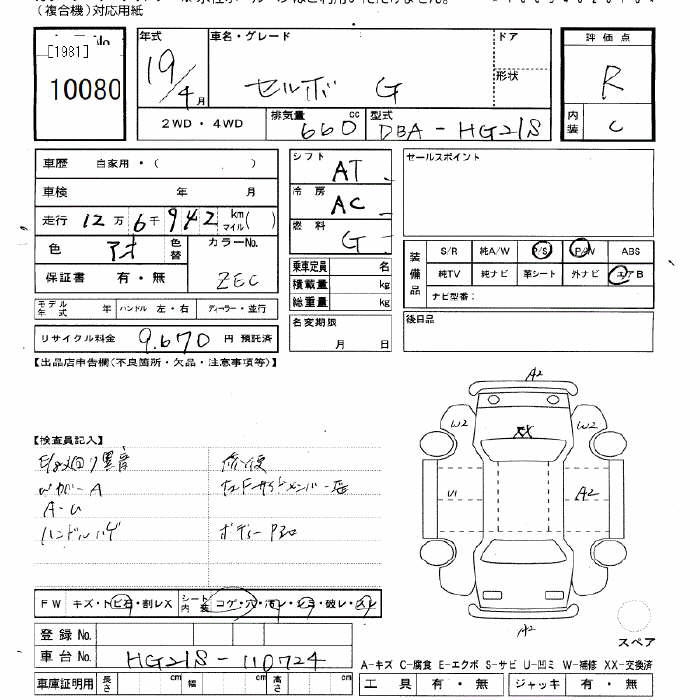 (複合機)対応用紙
[1981]
10080
年式
19/4 月
車名・グレード
セルボ G
ドア
形状
評価点
R
内装
C
2WD・4WD
排気量 660 cc
型式 DBA-HG21S
車歴 自家用・( )
車検 年 月
走行 12万6千942 km マイル( )
色 アオ 色替
カラーNo. ZEC
保証書 有・無
モデル年式 年 ハンドル 左・右 ディーラー・並行
リサイクル料金 9,670 円 預託済
シフト AT
冷房 AC
燃料 G
乗車定員 名
積載量 kg
総重量 kg
名変期限
月 日
セールスポイント
装備品
S/R 純A/W P/S P/W ABS
純TV 純ナビ 革シート 外ナビ エアB
ナビ型番:
後日品
【出品店申告欄(不良箇所・欠品・注意事項等)】
【検査員記入】
A-U
ハンドルハゲ
FW キズ・トビ石・割レX シート内装 コゲ・穴・汚レ・シミ・破レ・スレ
登録No.
車台No. HG21S-110724
車庫証明用 長さ cm 幅 cm 高さ cm
A2
W2
W2
XX
U1
A2
A2
スペア
A-キズ C-腐食 E-エクボ S-サビ U-凹ミ W-補修 XX-交換済
工具 有・無 ジャッキ 有・無